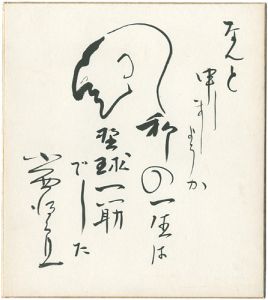 なんと
申しましょうか
私の一生は
野球一筋
でした